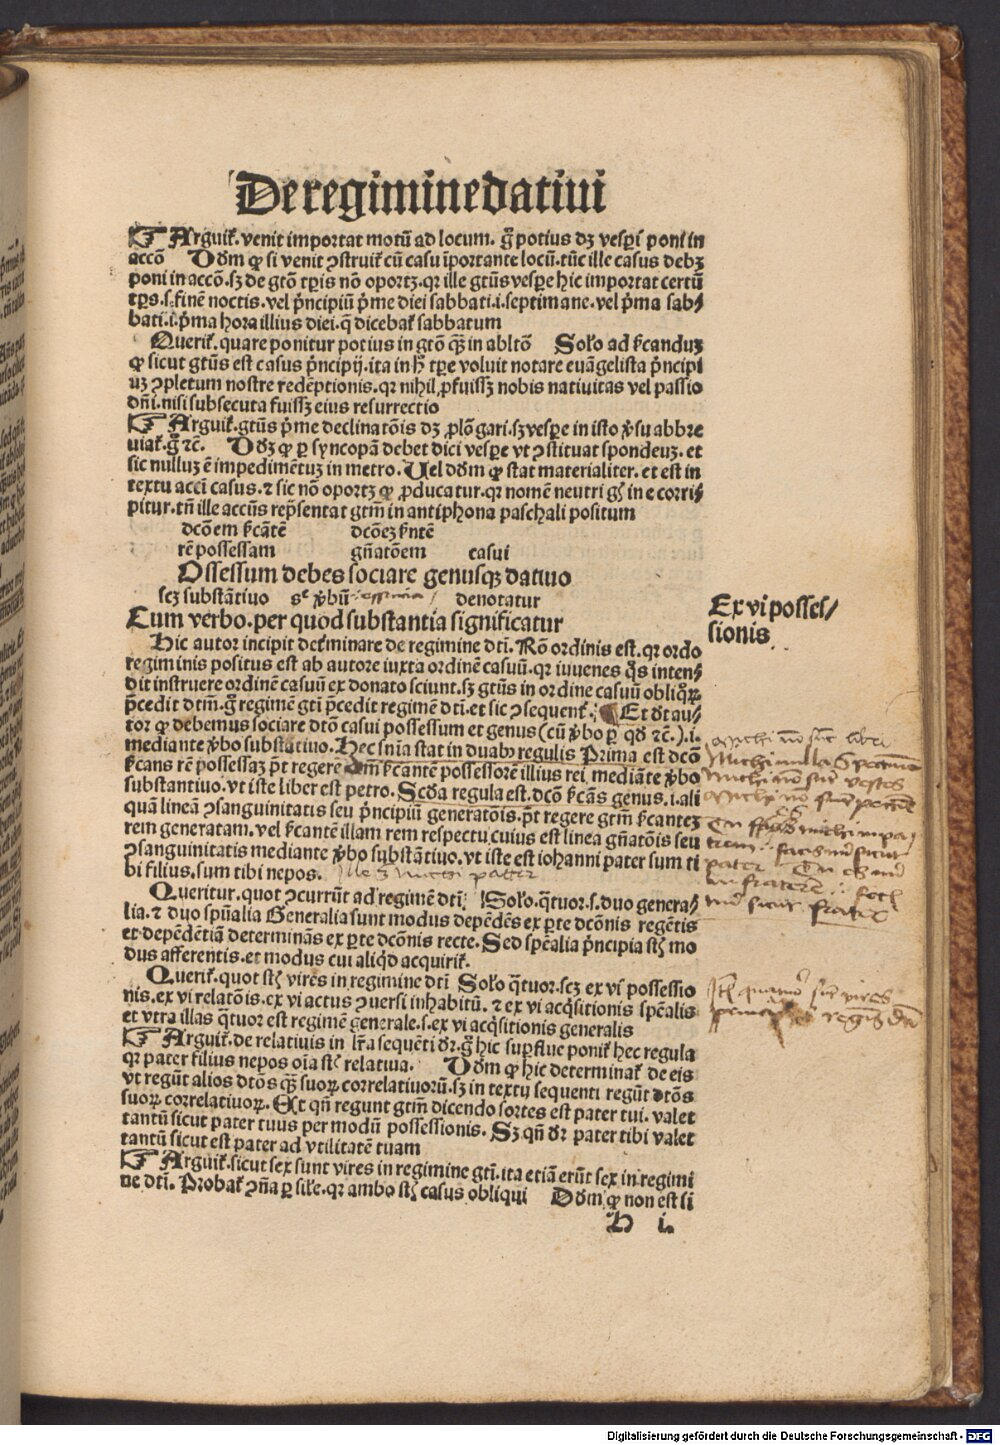 De regimine datiui
☞ Arguit̃. venit importat motũ ad locum. g̃ potius dꝫ vesꝑi poni in
accõ Dõm ꝙ si venit ꝯstruit̃ cũ casu ĩportante locũ. tũc ille casus debꝫ
poni in accõ. sꝫ de gtõ tꝑis nõ oportꝫ. qꝛ ille gtũs vespe hic importat certũ
tꝑs. s. finẽ noctis. vel pͥncipiũ pͥme diei sabbati. i. septimane. vel pͥma sab⸗
bati. i. pͥma hora illius diei. q̃ dicebat̃ sabbatum
Querit̃. quare ponitur potius in gtõ qꝫ̃ in abltõ Solo ad sͥcanduꝫ
ꝙ sicut gtũs est casus pͥncipij. ita in hͦ tꝑe voluit notare euãgelista pͥncipi
uꝫ ꝯpletum nostre redẽptionis. qꝛ nihil ꝓfuissꝫ nobis natiuitas vel passio
dñi. nisi subsecuta fuissꝫ eius resurrectio
☞ Arguit̃. gtũs pͥme declinatõis dꝫ ꝓlõgari. sꝫ vespe in isto ꝟsu abbre
uiat̃. g̃ ꝛc̃. Dõꝫ ꝙ ꝑ syncopã debet dici vespe vt ꝯstituat spondeuꝫ. et
sic nulluꝫ ẽ impedimẽtuꝫ in metro. Uel dõm ꝙ stat materialiter. et est in
textu acci casus. ⁊ sic nõ oportꝫ ꝙ ꝓducatur. qꝛ nomẽ neutri gñis in e corri⸗
pitur. tñ ille accũs rep̃sentat gtm̃ in antiphona paschali positum
dcõem sͥcãtẽ dcõeꝫ sͥntẽ
rẽ possessam gñatõem casui
Ossessum debes sociare genusqꝫ datiuo
scꝫ substãtiuo ꝟbũ denotatur
Cum verbo. per quod substantia significatur
Ex vi posses⸗
sionis
Hic autor incipit det̃minare de regimine dti. Rõ ordinis est. qꝛ ordo
regiminis positus est ab autore iuxta ordinẽ casuũ. qꝛ iuuenes q̃s inten⸗
dit instruere ordinẽ casuũ ex donato sciunt. sꝫ gtũs in ordine casuũ obliqͦꝝ
p̃cedit dtm̃. g̃ regimẽ gti p̃cedit regimẽ dti. et sic ꝯsequent̃. Et dt̃ au⸗
tor ꝙ debemus sociare dtõ casui possessum et genus (cũ ꝟbo ꝑ qd̃ ꝛc̃.). i.
mediante ꝟbo substãtiuo. Hec sñia stat in duabꝰ regulis Prima est dcõ
sͥcans rẽ possessaꝫ pt̃ regere dtm̃ sͥcantẽ possessorẽ illius rei mediãte ꝟbo
substantiuo. vt iste liber est petro. Scd̃a regula est. dcõ sͥcãs genus. i. ali
quã lineã ꝯsanguinitatis seu pͥncipiũ generatõis. pt̃ regere gtm̃ sͥcanteꝫ
rem generatam. vel sͥcantẽ illam rem respectu cuius est linea gñatõis seu
ꝯsanguinitatis mediante ꝟbo substãtiuo. vt iste est iohanni pater sum ti
bi filius. sum tibi nepos.
Queritur. quot ꝯcurrũt ad regimẽ dti. Solo. q̃tuor. s. duo genera⸗
lia. ⁊ duo spũalia Generalia sunt modus depẽdẽs ex ꝑte dcõnis regẽtis
et depẽdẽtiã determinãs ex ꝑte dcõnis recte. Sed spẽalia pͥncipia st̃ mo
dus afferentis. et modus cui aliqͥd acquirit̃.
Querit̃. quot st̃ vires in regimine dti Solo q̃tuor. scꝫ ex vi possessio
nis. ex vi relatõis. ex vi actus ꝯuersi in habitũ. ⁊ ex vi acqͥsitionis spẽalis
et vtra illas q̃tuor est regimẽ generale. s. ex vi acqͥsitionis generalis
☞ Arguit̃. de relatiuis in lr̃a sequẽti dr̃. g̃ hic suꝑflue ponit̃ hec regula
qꝛ pater filius nepos oĩa st̃ relatiua. Dõm ꝙ hic determinat̃ de eis
vt regũt alios dtõs qꝫ̃ suoꝝ correlatiuorũ. sꝫ in textu sequenti regũt dtõs
suoꝝ correlatiuoꝝ. Et qñ regunt gtm̃ dicendo sortes est pater tui. valet
tantũ sicut pater tuus per modũ possessionis. Sꝫ qñ dr̃ pater tibi valet
tantũ sicut est pater ad vtilitatẽ tuam
☞ Arguit̃. sicut sex sunt vires in regimine gti. ita etiã erũt sex in regimi
ne dti. Probat̃ ꝯña ꝑ sile. qꝛ ambo st̃ casus obliqui Dõm ꝙ non est si
H i.
Digitalisierung gefördert durch die Deutsche Forschungsgemeinschaft - DFG